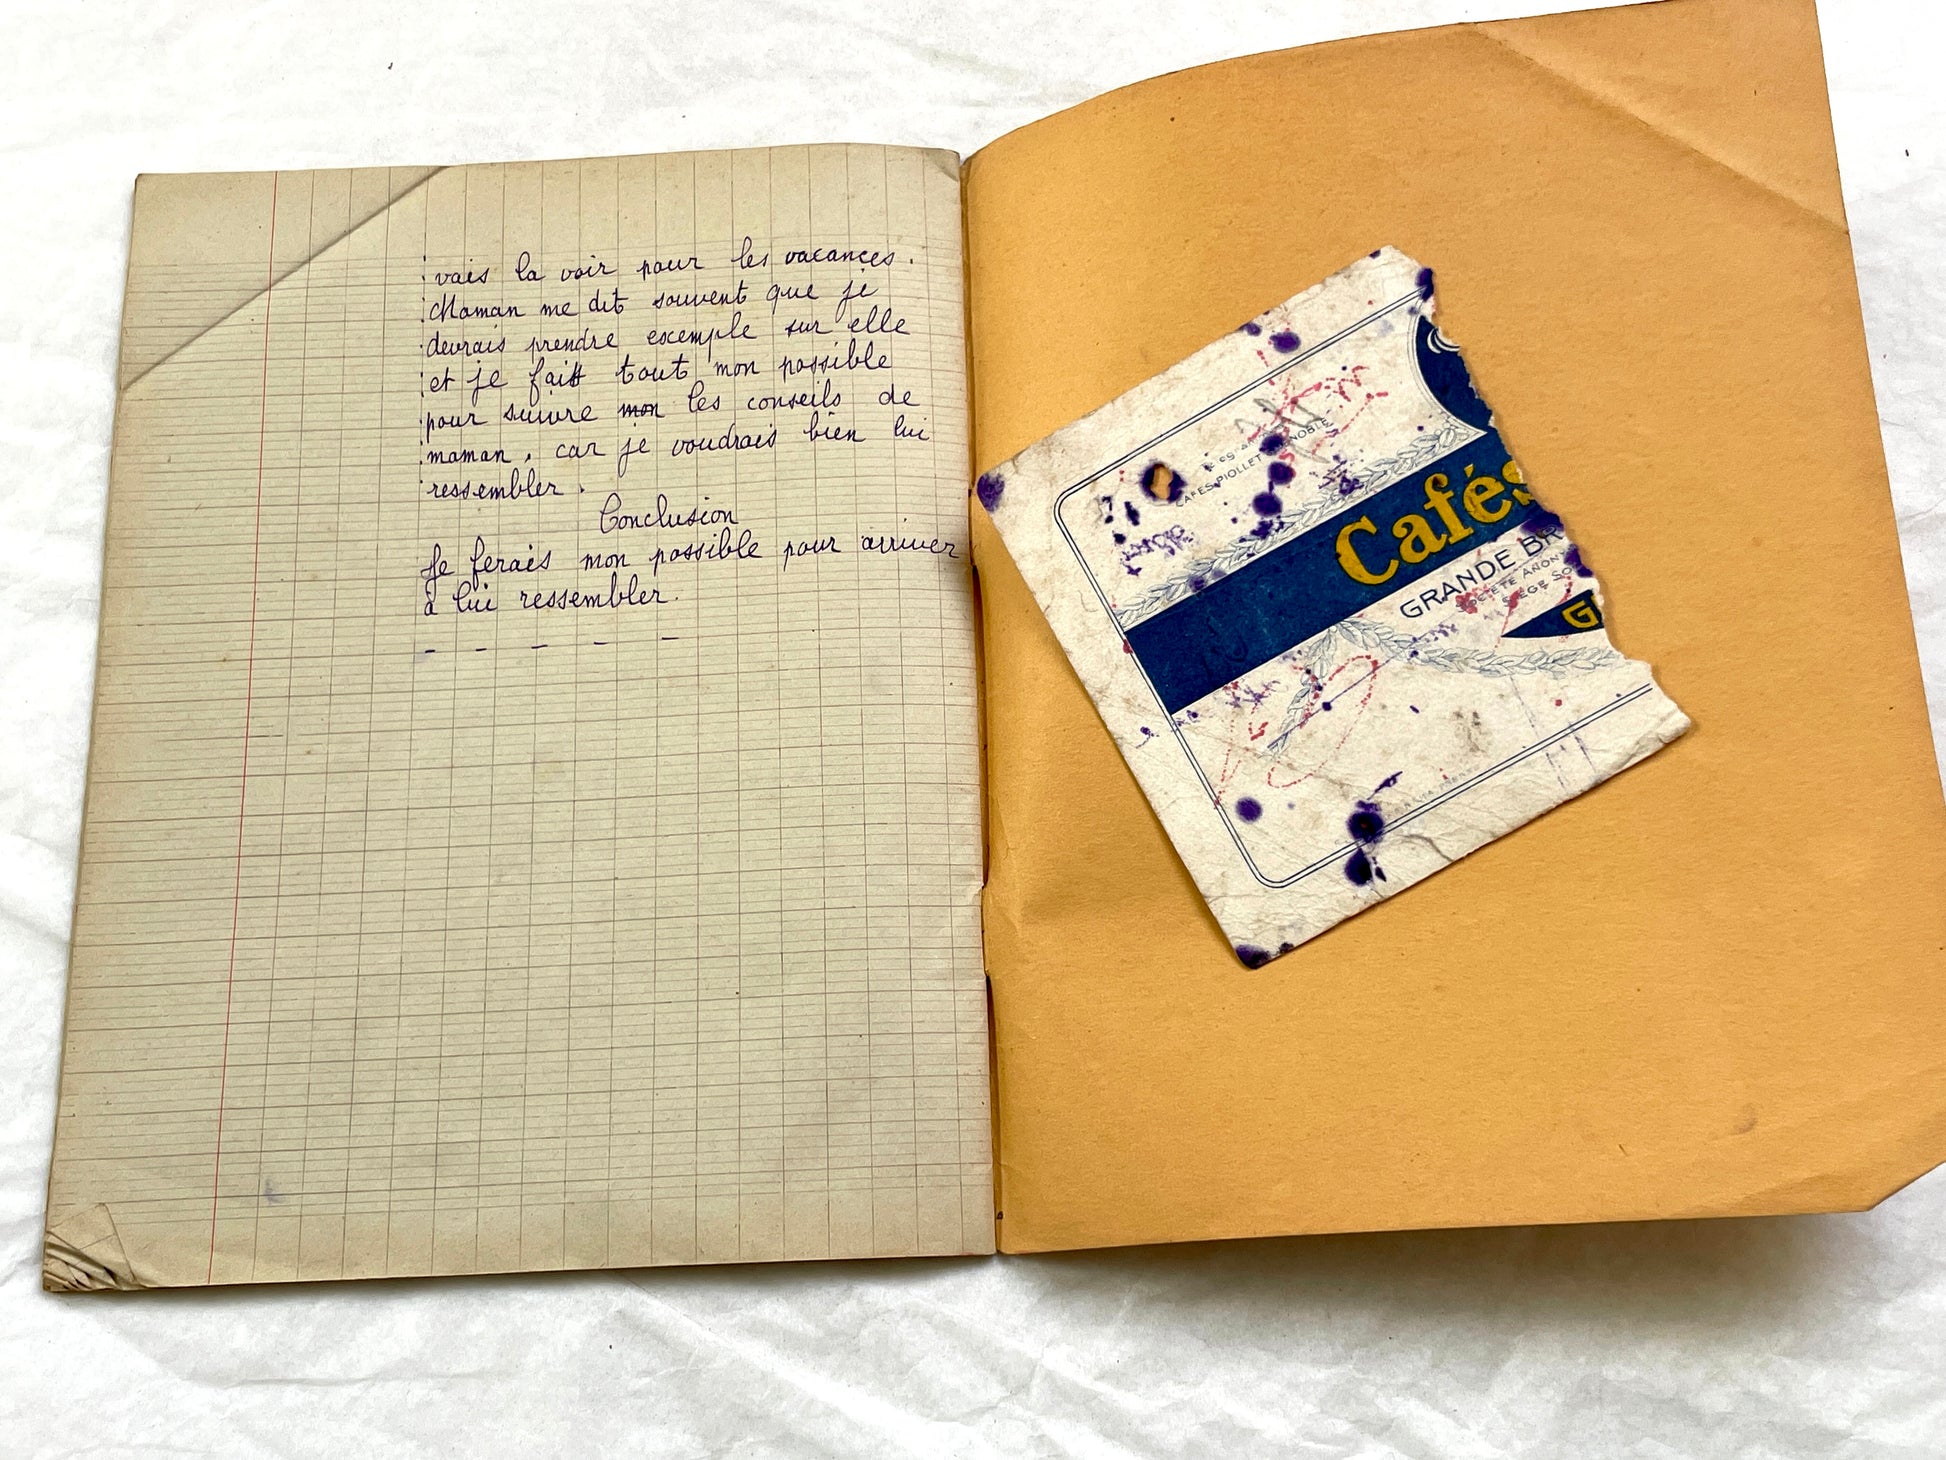 vais la voir pour les vacances.
Maman me dit souvent que je
devrais prendre excemple sur elle
et je fait tout mon possible
pour suivre mon les conseils de
maman, car je voudrais bien lui
ressembler.
Conclusion
Je ferais mon possible pour arriver
a lui ressembler.
- - - - -
CAFES PIOLLET GRENOBLE
Cafés
GRANDE BR
SOCIETE ANONY
SIEGE SO
G